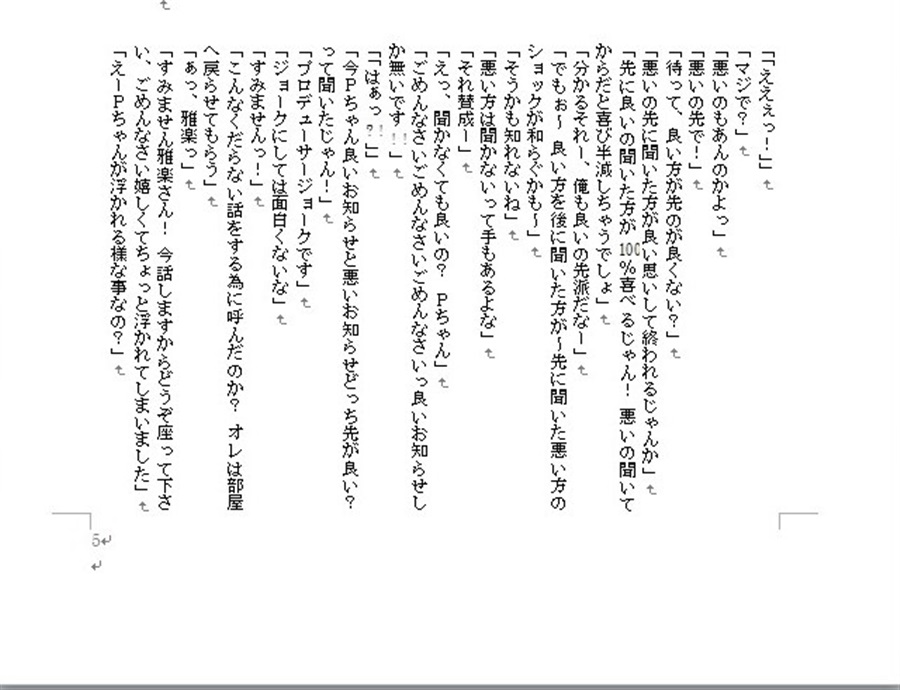 「えええっ！」
「マジで？」
「悪いのもあんのかよっ」
「悪いの先で！」
「待って、良い方が先のが良くない？」
「悪いの先に聞いた方が良い思いして終われるじゃんか」
「先に良いの聞いた方が100％喜べるじゃん！　悪いの聞いて
からだと喜び半減しちゃうでしょ」
「分かるそれー、俺も良いの先派だなー」
「でもぉ～　良い方を後に聞いた方が～先に聞いた悪い方の
ショックが和らぐかも～」
「そうかも知れないね」
「悪い方は聞かないって手もあるよな」
「それ賛成ー」
「えっ、聞かなくても良いの？　Ｐちゃん」
「ごめんなさいごめんなさいごめんなさいっ良いお知らせし
か無いです！！」
「「はぁっ？！」」
「今Ｐちゃん良いお知らせと悪いお知らせどっち先が良い？
って聞いたじゃん！」
「プロデューサージョークです」
「ジョークにしては面白くないな」
「すみませんっ！」
「こんなくだらない話をする為に呼んだのか？　オレは部屋
へ戻らせてもらう」
「あっ、雅楽っ」
「すみません雅楽さん！　今話しますからどうぞ座って下さ
い、ごめんなさい嬉しくてちょっと浮かれてしまいました」
「えーＰちゃんが浮かれる様な事なの？」
5